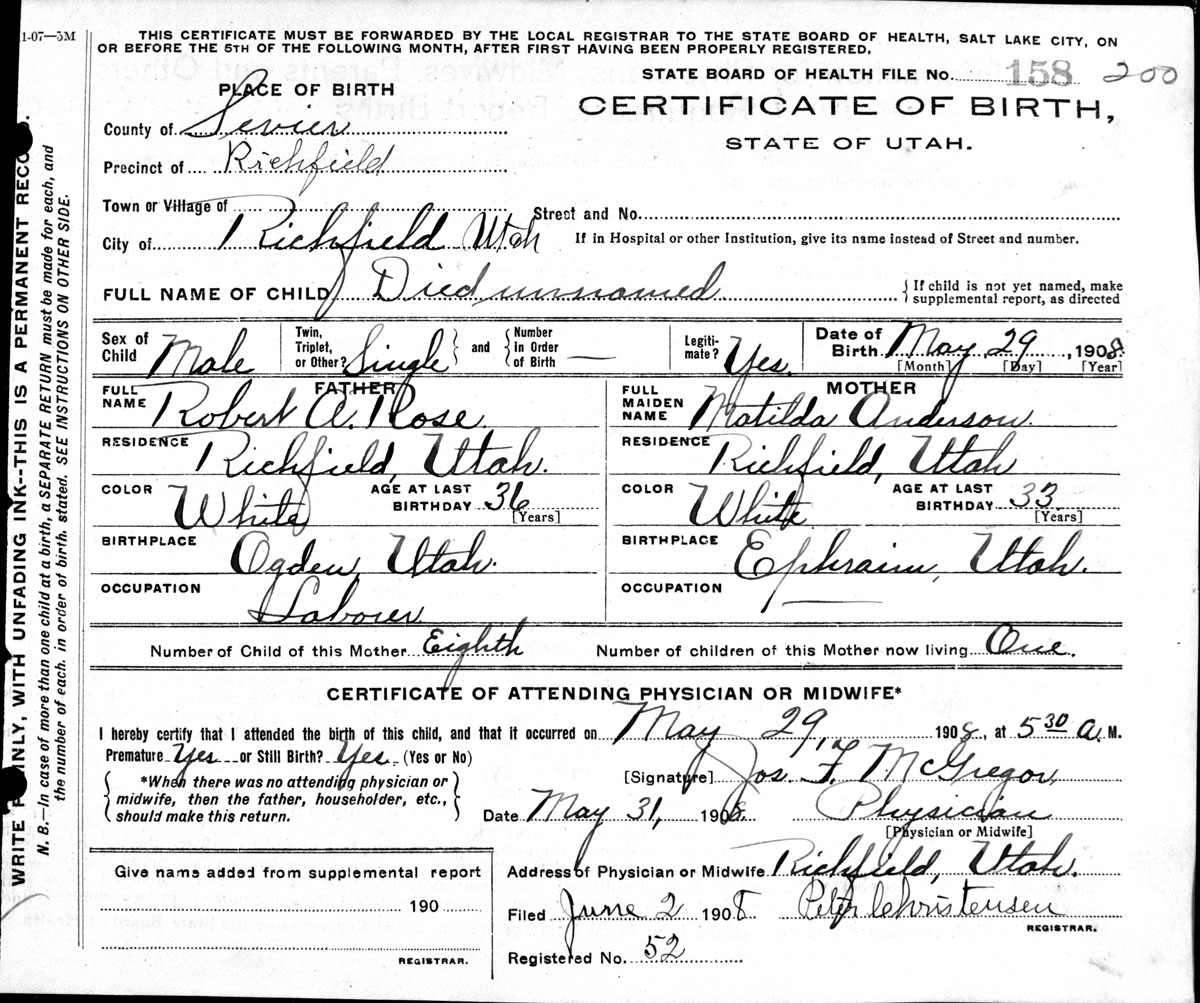 1-07—5M
THIS CERTIFICATE MUST BE FORWARDED BY THE LOCAL REGISTRAR TO THE STATE BOARD OF HEALTH, SALT LAKE CITY, ON
OR BEFORE THE 5TH OF THE FOLLOWING MONTH, AFTER FIRST HAVING BEEN PROPERLY REGISTERED.
STATE BOARD OF HEALTH FILE No. 158 200
PLACE OF BIRTH
CERTIFICATE OF BIRTH,
STATE OF UTAH.
County of Sevier
Precinct of Richfield
Town or Village of
Street and No.
City of Richfield Utah
If in Hospital or other Institution, give its name instead of Street and number.
FULL NAME OF CHILD Died unnamed
If child is not yet named, make
supplemental report, as directed
Sex of Child Male
Twin, Triplet, or Other? Single and Number in Order of Birth —
Legiti-mate? Yes.
Date of Birth May 29, 1908.
[Month] [Day] [Year]
FATHER
FULL NAME Robert A. Rose.
RESIDENCE Richfield, Utah.
COLOR White AGE AT LAST BIRTHDAY 36
[Years]
BIRTHPLACE Ogden, Utah.
OCCUPATION Laborer
MOTHER
FULL MAIDEN NAME Matilda Anderson.
RESIDENCE Richfield, Utah
COLOR White AGE AT LAST BIRTHDAY 33
[Years]
BIRTHPLACE Ephraim, Utah.
OCCUPATION —
Number of Child of this Mother Eighth Number of children of this Mother now living One.
CERTIFICATE OF ATTENDING PHYSICIAN OR MIDWIFE*
I hereby certify that I attended the birth of this child, and that it occurred on May 29, 1908, at 5 30 A. M.
Premature Yes or Still Birth? Yes (Yes or No)
*When there was no attending physician or
midwife, then the father, householder, etc.,
should make this return.
[Signature] Jos. F. McGregor,
Date May 31, 1908. Physician
[Physician or Midwife]
Address of Physician or Midwife Richfield, Utah.
Give name added from supplemental report
190
REGISTRAR.
Filed June 2 1908 Peter Christensen
REGISTRAR.
Registered No. 52
WRITE PLAINLY, WITH UNFADING INK--THIS IS A PERMANENT RECO
N. B.—In case of more than one child at a birth, a SEPARATE RETURN must be made for each, and
the number of each. in order of birth. stated. SEE INSTRUCTIONS ON OTHER SIDE.